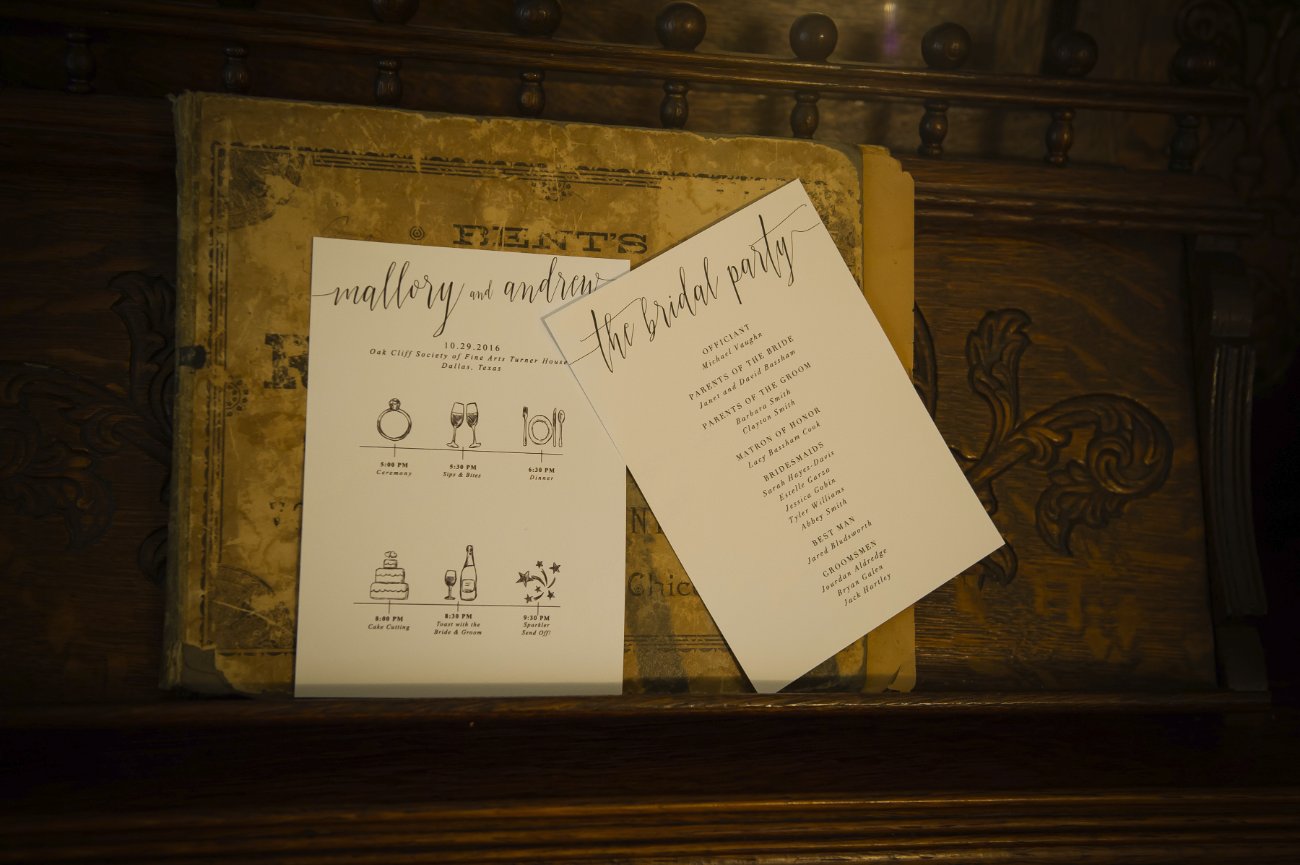 BENT'S
mallory and andrew
10.29.2016
Oak Cliff Society of Fine Arts Turner House
Dallas, Texas
5:00 PM
Ceremony
5:30 PM
Sips & Bites
6:30 PM
Dinner
8:00 PM
Cake Cutting
8:30 PM
Toast with the
Bride & Groom
9:30 PM
Sparkler
Send Off!
the bridal party
OFFICIANT
Michael Vaughn
PARENTS OF THE BRIDE
Janet and David Bassham
PARENTS OF THE GROOM
Barbara Smith
Clayton Smith
MATRON OF HONOR
Lacy Bassham Cook
BRIDESMAIDS
Sarah Hayes-Davis
Estelle Garza
Jessica Gobin
Tyler Williams
Abbey Smith
BEST MAN
Jared Bludsworth
GROOMSMEN
Jourdan Aldredge
Bryan Galen
Jack Hartley